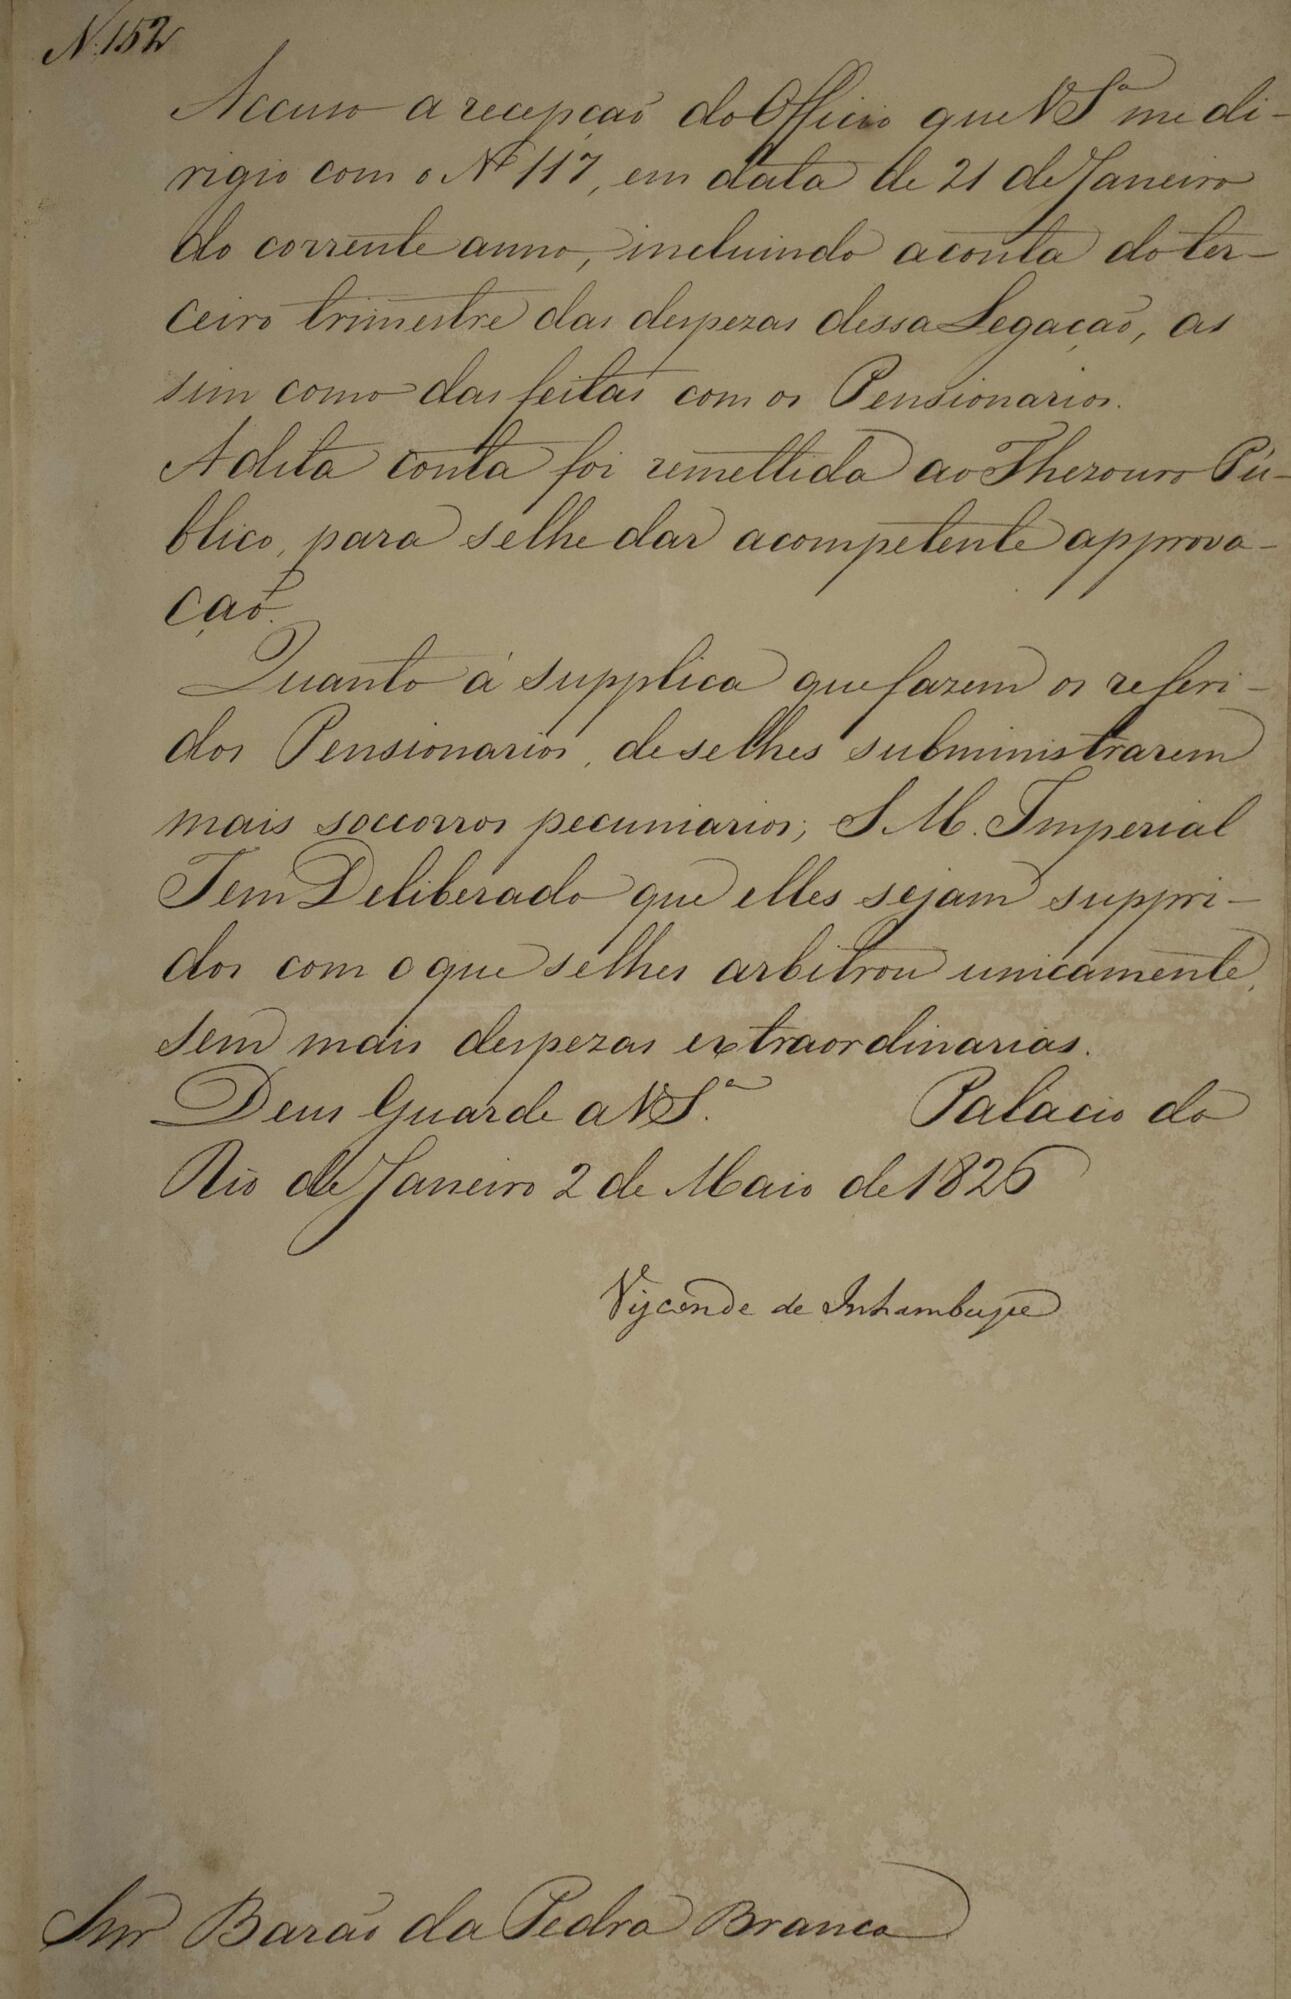 N. 152
Accuso a recepçaõ do Officio que V Sª me di-
rigio com o Nº 117, em data de 21 de Janeiro
do corrente anno, incluindo a conta do ter-
ceiro trimestre das despezas dessa Legaçaõ, as
sim como das feitas com os Pensionarios.
A dita conta foi remettida ao Thezouro Pú-
blico, para se lhe dar a competente approva-
çaõ.
Quanto á supplica que fazem os referi-
dos Pensionarios, de se lhes subministrarem
mais soccorros pecuniarios; S. M. Imperial
Tem Deliberado que elles sejam suppri-
dos com o que se lhes arbitrou unicamente,
sem mais despezas extraordinarias.
Deus Guarde a V S.ª Palacio do
Rio de Janeiro 2 de Maio de 1826
Visconde de Inhambupe
Snr Baraõ da Pedra Branca